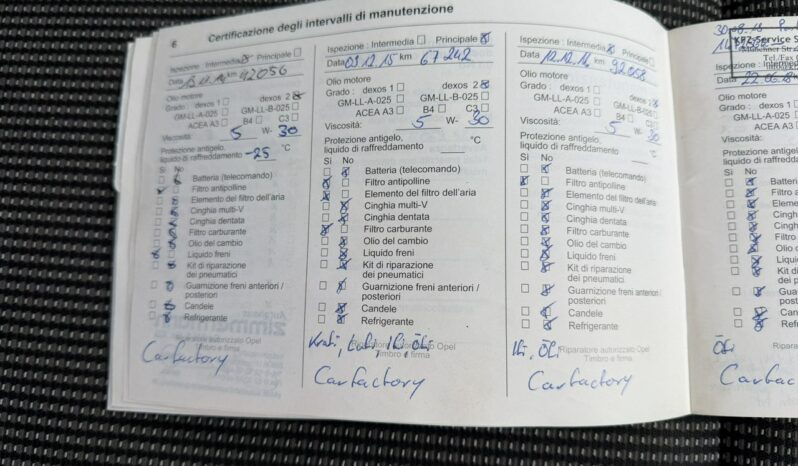 6 Certificazione degli intervalli di manutenzione
Ispezione : Intermedia Principale
Data km 92056
Olio motore
Grado : dexos 1 dexos 2
GM-LL-A-025 GM-LL-B-025
ACEA A3 B4 C3
Viscosità: 5 W- 30
Protezione antigelo,
liquido di raffreddamento -25 °C
Sì No
Batteria (telecomando)
Filtro antipolline
Elemento del filtro dell'aria
Cinghia multi-V
Cinghia dentata
Filtro carburante
Olio del cambio
Liquido freni
Kit di riparazione
dei pneumatici
Guarnizione freni anteriori /
posteriori
Candele
Refrigerante
Riparatore autorizzato Opel
Timbro e firma
Carfactory
Ispezione : Intermedia Principale
Data 03.12.15 km 67242
Olio motore
Grado : dexos 1 dexos 2
GM-LL-A-025 GM-LL-B-025
ACEA A3 B4 C3
Viscosità: 5 W- 30
Protezione antigelo,
liquido di raffreddamento °C
Sì No
Batteria (telecomando)
Filtro antipolline
Elemento del filtro dell'aria
Cinghia multi-V
Cinghia dentata
Filtro carburante
Olio del cambio
Liquido freni
Kit di riparazione
dei pneumatici
Guarnizione freni anteriori /
posteriori
Candele
Refrigerante
Krafi, Lufi, Ifi, Öfi
Riparatore autorizzato Opel
Timbro e firma
Carfactory
Ispezione : Intermedia Principale
Data 12.12.16 km 92058
Olio motore
Grado : dexos 1 dexos 2
GM-LL-A-025 GM-LL-B-025
ACEA A3 B4 C3
Viscosità: 5 W- 30
Protezione antigelo,
liquido di raffreddamento °C
Sì No
Batteria (telecomando)
Filtro antipolline
Elemento del filtro dell'aria
Cinghia multi-V
Cinghia dentata
Filtro carburante
Olio del cambio
Liquido freni
Kit di riparazione
dei pneumatici
Guarnizione freni anteriori /
posteriori
Candele
Refrigerante
Ifi, Öfi
Riparatore autorizzato Opel
Timbro e firma
Carfactory
KFZ-Service S
Tel./Fax
Ispezione :
Data 22.06.18
Olio motore
Grado : dexos 1
GM-LL-A-025
ACEA A3
Viscosità:
Protezione antigelo
liquido di raffredda
Sì No
Batteri
Filtro
Eleme
Cingh
Cingh
Filtro
Olio
Liquid
Kit di
dei p
Guar
poste
Cand
Refri
Öfi
Carfac